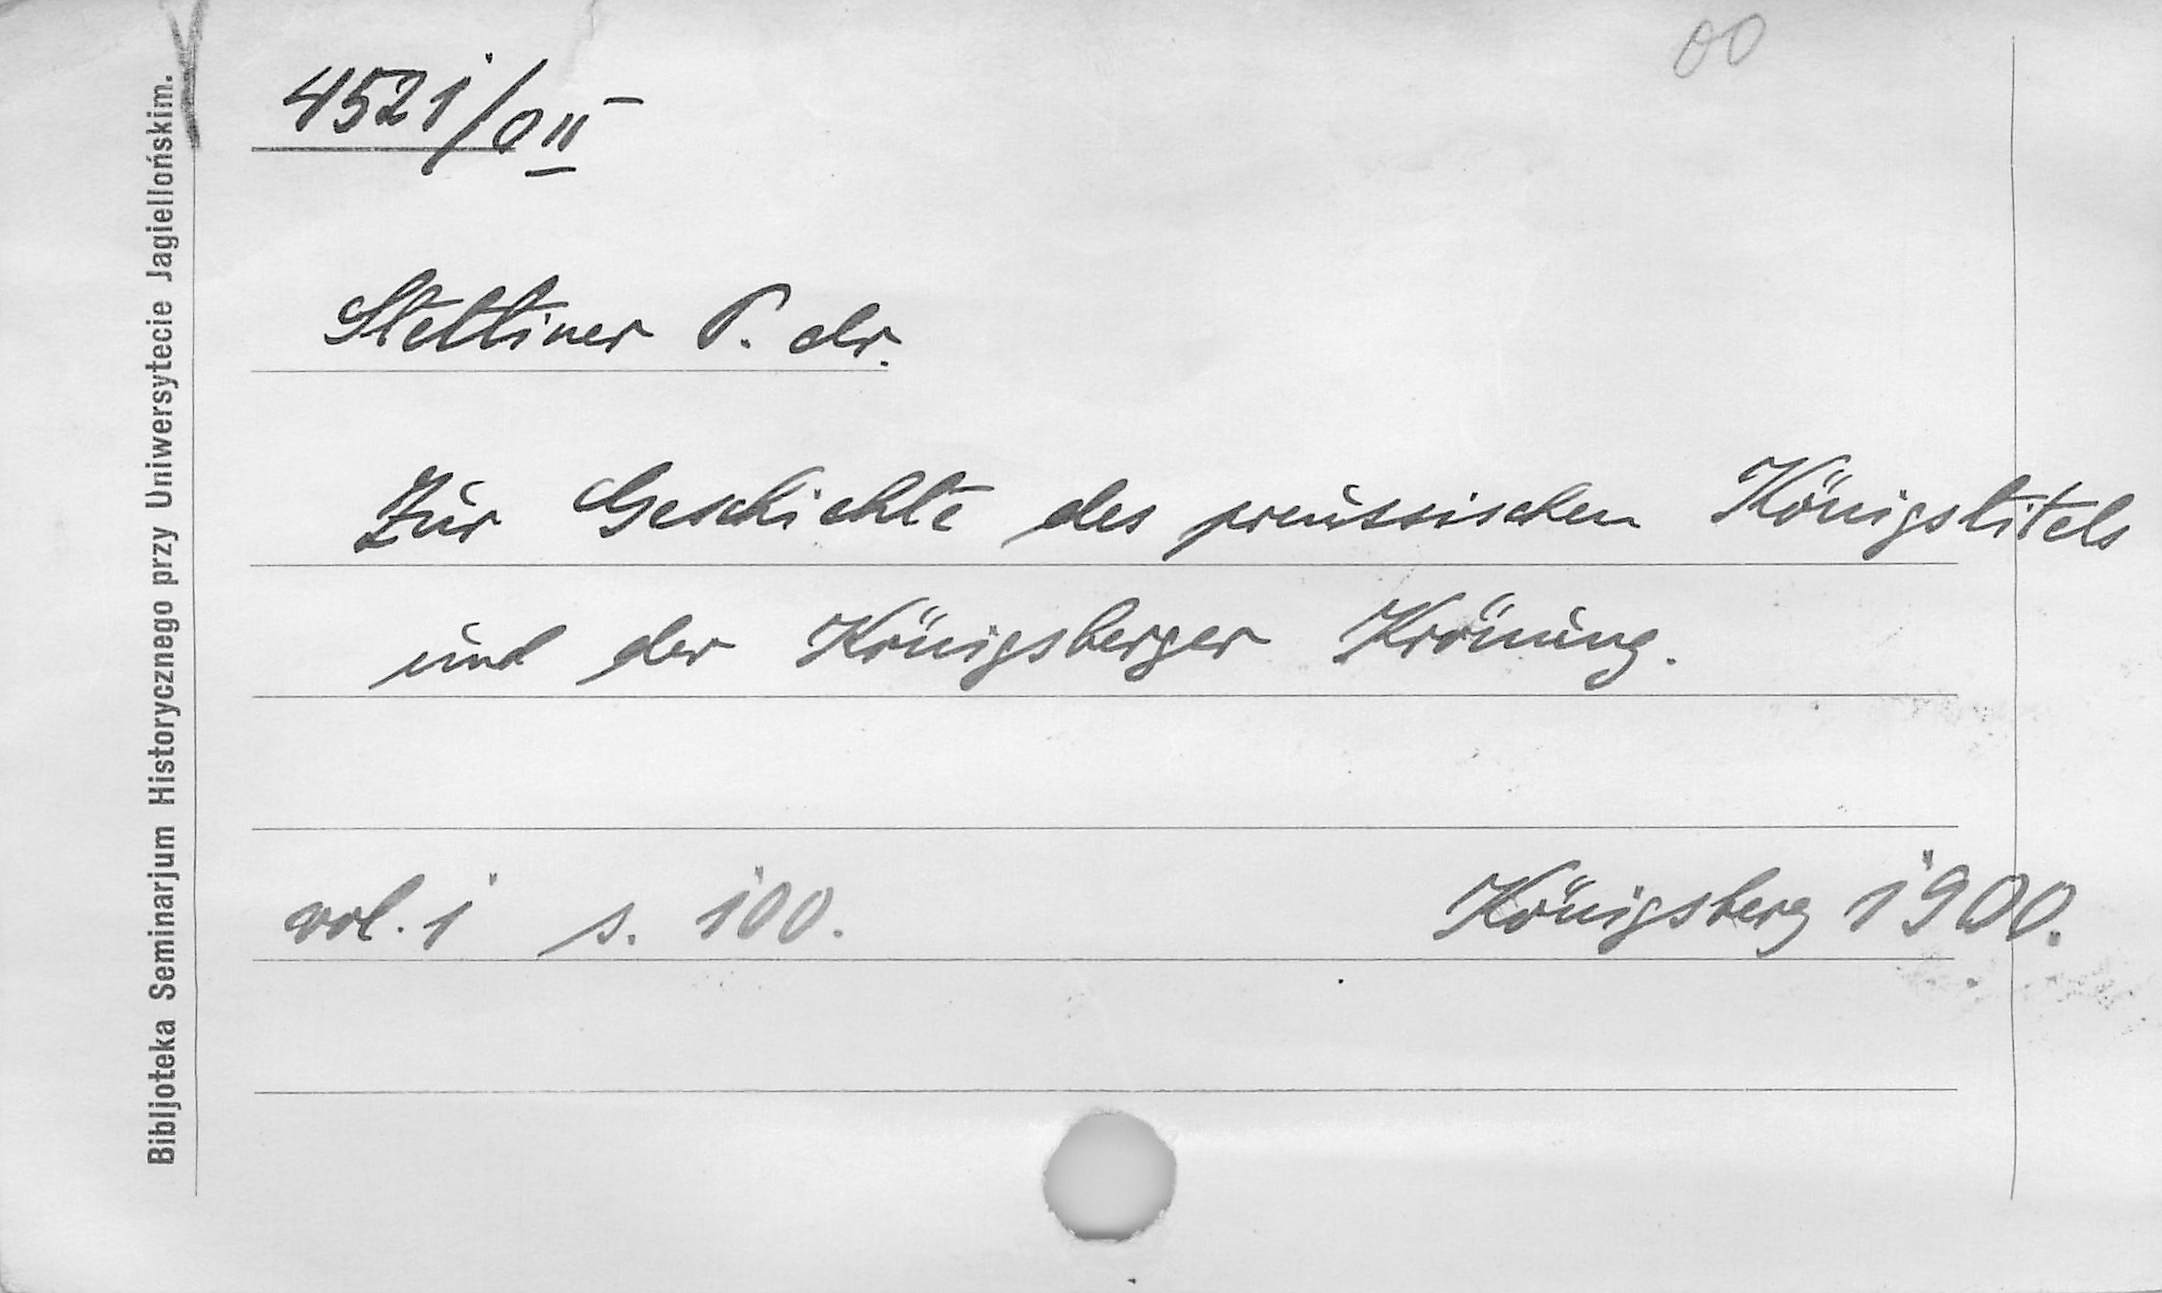 00
4521/0 II
Stettiner P. dr.
Zur Geschichte des preussischen Königstitels
und der Königsberger Krönung.
vol. 1 s. 100. Königsberg 1900.
Bibljoteka Seminarjum Historycznego przy Uniwersytecie Jagiellońskim.